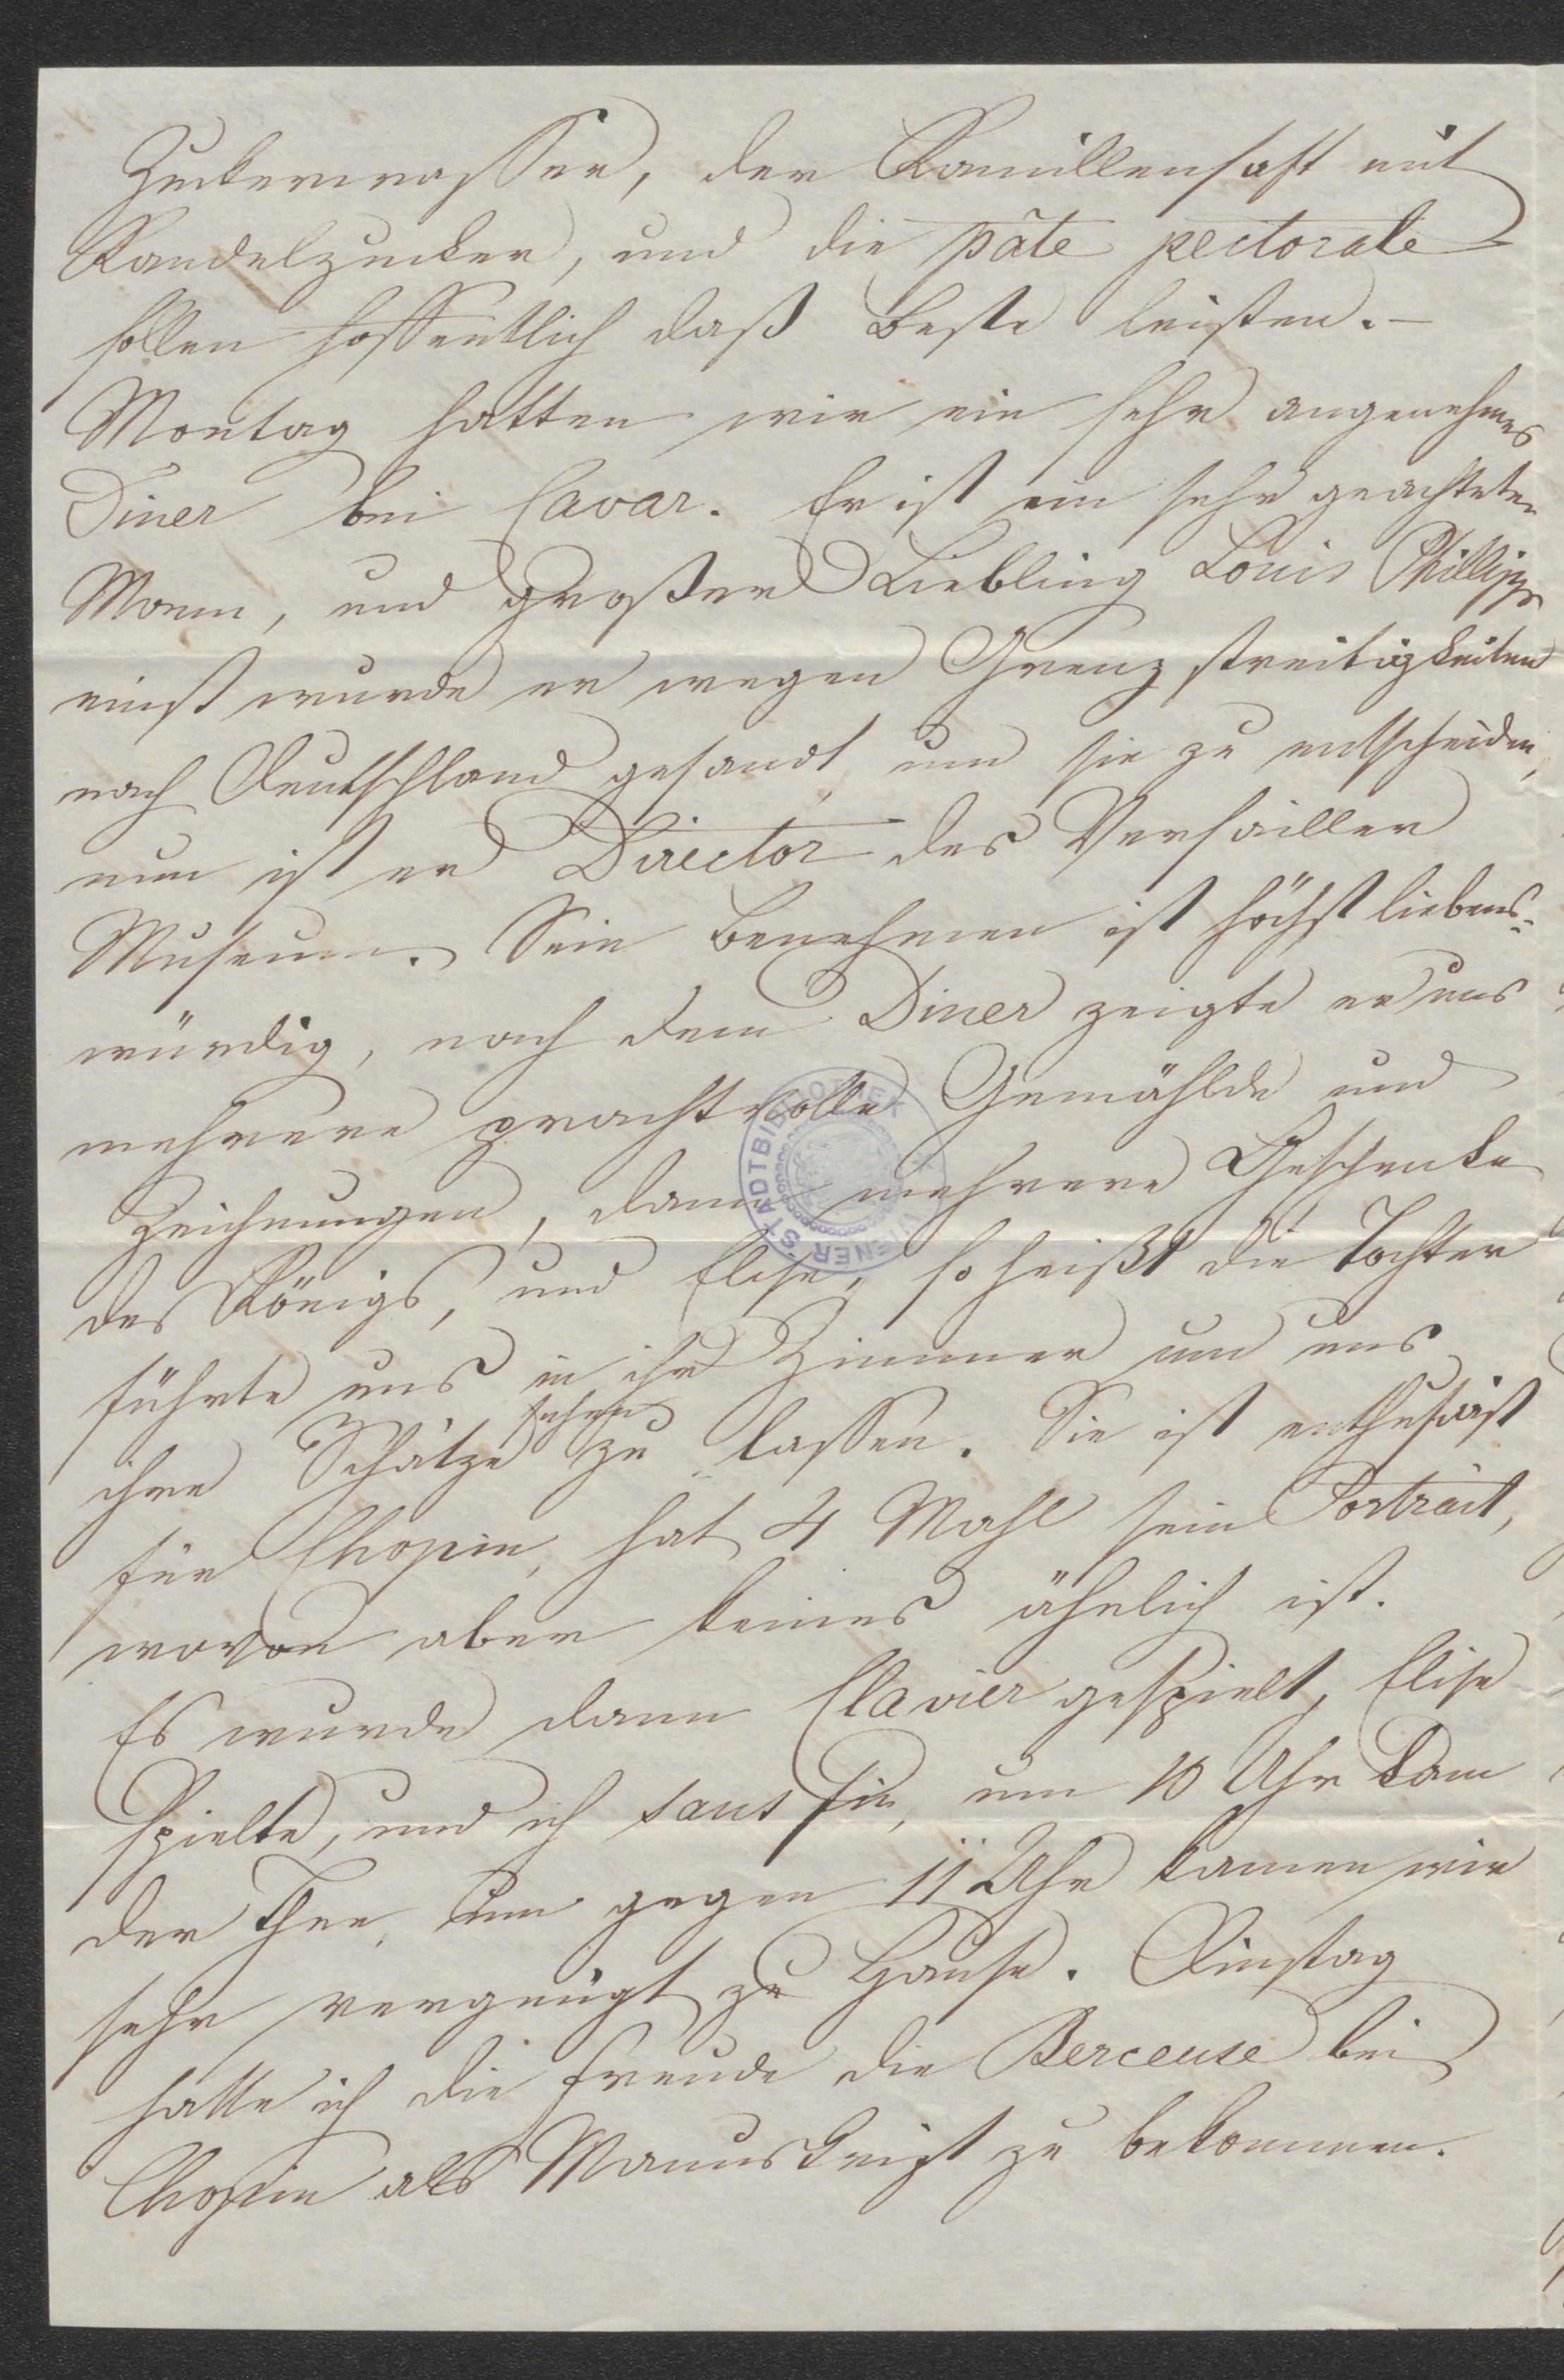 Zuckerwasser, der Kamillensaft mit
Kandelzucker, und die pâte pectorale
sollen hoffentlich daß Beste leisten.–
Montag hatten wir ein sehr angenehmes
Diner bei Cavar. Er ist ein sehr geachteter
Mann, und großer Liebling Louis Phillipps
einst wurde er wegen Grenzstreitigkeiten
nach Deutschland gesandt um sie zu entscheiden,
nun ist er Director des Versailler
Museum. Sein Benehmen ist höchst liebens=
würdig, nach dem Diner zeigte er uns
mehrere prachtvolle Gemählde und
Zeichnungen, dann mehrere Geschenke
des Königs, und Elise, so heißt die Tochter
führte uns in ihr Zimmer um uns
ihre Schätze sehen zu lassen. Sie ist enthusiast
für Chopin, hat 4 Mahl sein Portrait,
wovon aber keines ähnlich ist.
Es wurde dann Clavier gespielt, Elise
spielte, und ich sans fin, um 10 Uhr kam
der Thee, um gegen 11 Uhr kamen wir
sehr vergnügt zu Hause. Dinstag
hatte ich die Freude die Berceuse bei
Chopin als Manuskript zu bekommen.
WIENER STADTBIBLIOTHEK